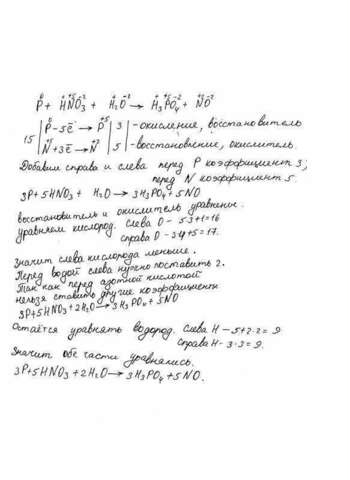 P⁰ + H⁺N⁺⁵O₃⁻² + H₂⁺O⁻² → H₃⁺P⁺⁵O₄⁻² + N⁺²O⁻²
15 | P⁰ - 5ē → P⁺⁵ | 3 | - окисление, восстановитель
N⁺⁵ + 3ē → N⁺² | 5 | - восстановление, окислитель.
Добавим справа и слева перед P коэффициент 3;
перед N коэффициент 5.
3P + 5HNO₃ + H₂O → 3H₃PO₄ + 5NO
восстановитель и окислитель уравнены.
Уравняем кислород. Слева O - 5·3+1=16
справа O - 3·4+5=17.
Значит слева кислорода меньше.
Перед водой слева нужно поставить 2.
Так как перед азотной кислотой
нельзя ставить другие коэффициенты
3P + 5HNO₃ + 2H₂O → 3H₃PO₄ + 5NO
Остаётся уравнять водород. Слева H - 5+2·2 = 9
справа H - 3·3 = 9.
Значит обе части уравнялись.
3P + 5HNO₃ + 2H₂O → 3H₃PO₄ + 5NO.